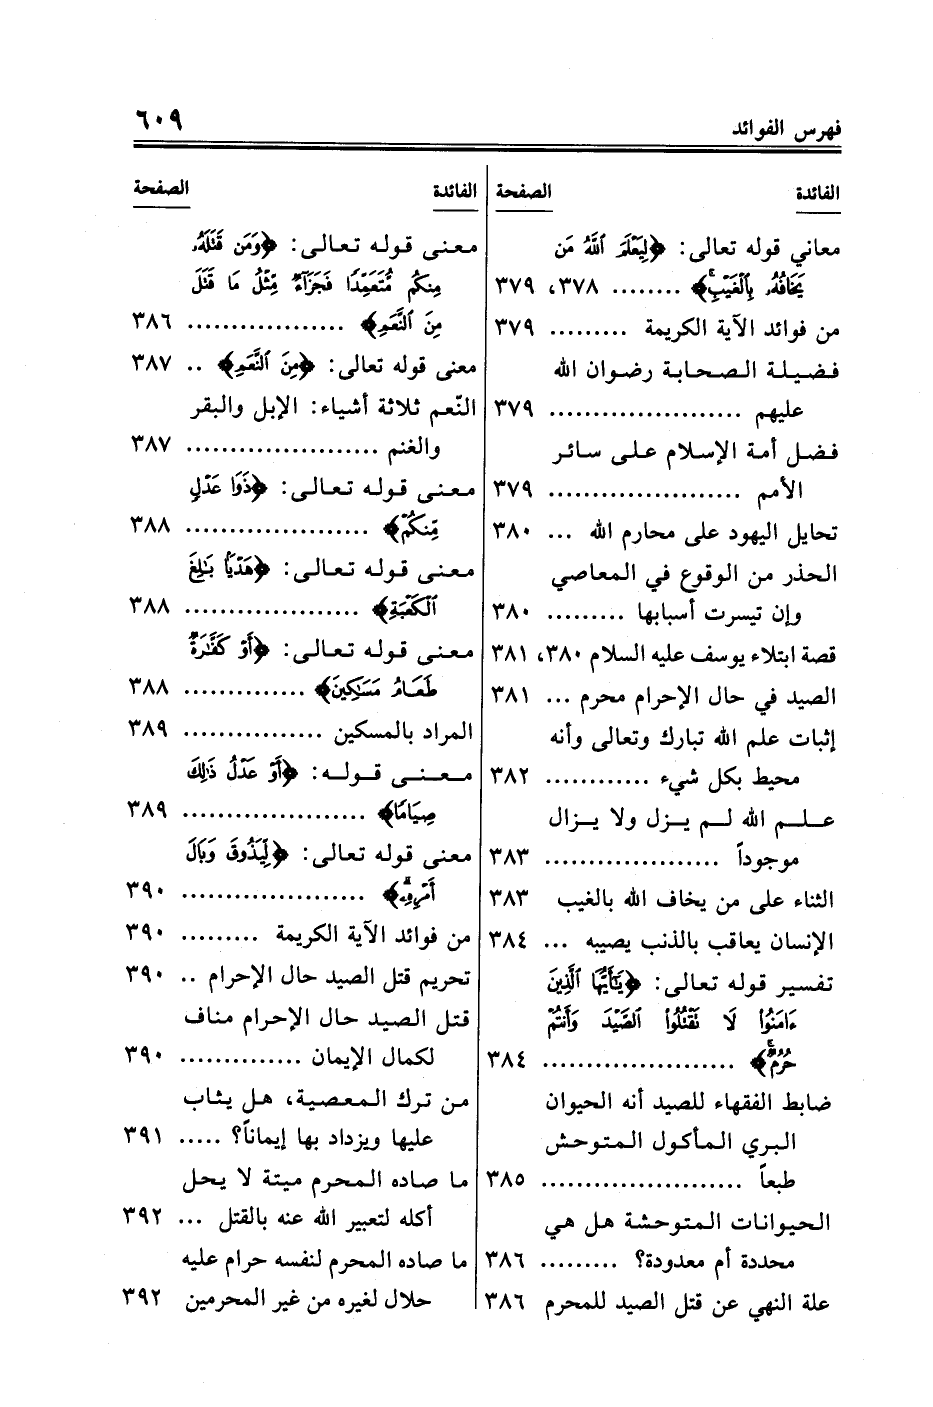 فهرس الفوائد ٦٠٩
الفائدة الصفحة
معاني قوله تعالى: ﴿لِيَعْلَمَ اللَّهُ مَن
يَخَافُهُ بِالْغَيْبِ﴾ ........ ٣٧٨، ٣٧٩
من فوائد الآية الكريمة ......... ٣٧٩
فضيلة الصحابة رضوان الله
عليهم ...................... ٣٧٩
فضل أمة الإسلام على سائر
الأمم ...................... ٣٧٩
تحايل اليهود على محارم الله ... ٣٨٠
الحذر من الوقوع في المعاصي
وإن تيسرت أسبابها ......... ٣٨٠
قصة ابتلاء يوسف عليه السلام ٣٨٠، ٣٨١
الصيد في حال الإحرام محرم ... ٣٨١
إثبات علم الله تبارك وتعالى وأنه
محيط بكل شيء ............ ٣٨٢
علم الله لم يزل ولا يزال
موجوداً .................... ٣٨٣
الثناء على من يخاف الله بالغيب ٣٨٣
الإنسان يعاقب بالذنب يصيبه ... ٣٨٤
تفسير قوله تعالى: ﴿يَٰٓأَيُّهَا الَّذِينَ
ءَامَنُوا لَا تَقْتُلُوا الصَّيْدَ وَأَنتُمْ
حُرُمٌ﴾ ...................... ٣٨٤
ضابط الفقهاء للصيد أنه الحيوان
البري المأكول المتوحش
طبعاً ....................... ٣٨٥
الحيوانات المتوحشة هل هي
محددة أم معدودة؟ ......... ٣٨٦
علة النهي عن قتل الصيد للمحرم ٣٨٦
الفائدة الصفحة
معنى قوله تعالى: ﴿وَمَن قَتَلَهُ
مِنكُم مُّتَعَمِّدًا فَجَزَآءٌ مِّثْلُ مَا قَتَلَ
مِنَ النَّعَمِ﴾ .................. ٣٨٦
معنى قوله تعالى: ﴿مِنَ النَّعَمِ﴾ .. ٣٨٧
النّعم ثلاثة أشياء: الإبل والبقر
والغنم ...................... ٣٨٧
معنى قوله تعالى: ﴿ذَوَا عَدْلٍ
مِّنكُمْ﴾ ..................... ٣٨٨
معنى قوله تعالى: ﴿هَدْيًا بَٰلِغَ
الْكَعْبَةِ﴾ .................... ٣٨٨
معنى قوله تعالى: ﴿أَوْ كَفَّٰرَةٌ
طَعَامُ مَسَٰكِينَ﴾ .............. ٣٨٨
المراد بالمسكين ................ ٣٨٩
معنى قوله: ﴿أَوْ عَدْلُ ذَٰلِكَ
صِيَامًا﴾ ..................... ٣٨٩
معنى قوله تعالى: ﴿لِّيَذُوقَ وَبَالَ
أَمْرِهِ﴾ ..................... ٣٩٠
من فوائد الآية الكريمة ......... ٣٩٠
تحريم قتل الصيد حال الإحرام .. ٣٩٠
قتل الصيد حال الإحرام مناف
لكمال الإيمان .............. ٣٩٠
من ترك المعصية، هل يثاب
عليها ويزداد بها إيماناً؟ ..... ٣٩١
ما صاده المحرم ميتة لا يحل
أكله لتعبير الله عنه بالقتل ... ٣٩٢
ما صاده المحرم لنفسه حرام عليه
حلال لغيره من غير المحرمين ٣٩٢